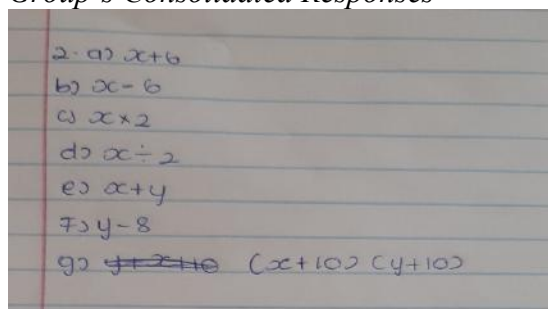 Group's Consolidated Responses
2. a) x+6
b) x-6
c) x×2
d) x÷2
e) x+y
f) y-8
g) ~~y+x+10~~ (x+10) (y+10)